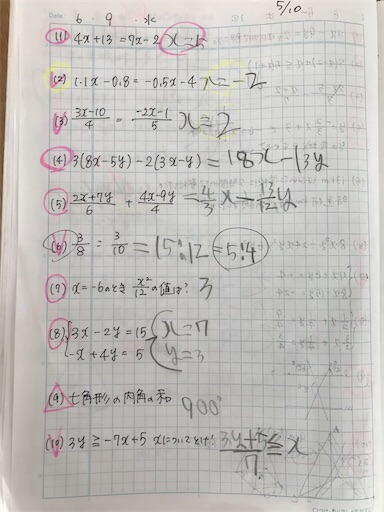 6 . 9 . 水
5/10
(1) 4x+13=7x-2 x=5
(2) 1.1x-0.8=-0.5x-4 x=-2
(3) 3x-10/4 = -2x-1/5 x=2
(4) 3(8x-5y)-2(3x-y)=18x-13y
(5) 2x+7y/6 + 4x-9y/4 = 4/3x-13/12y
(6) 3/8 : 3/10 = 15:12 = 5:4
(7) x=-6のとき x²/12 の値は? 3
(8) {3x-2y=15 {x=7
-x+4y=5 y=3
(9) 七角形の内角の和 900°
(10) 3y≧-7x+5 xについてとけ! 3y+5/7≦x